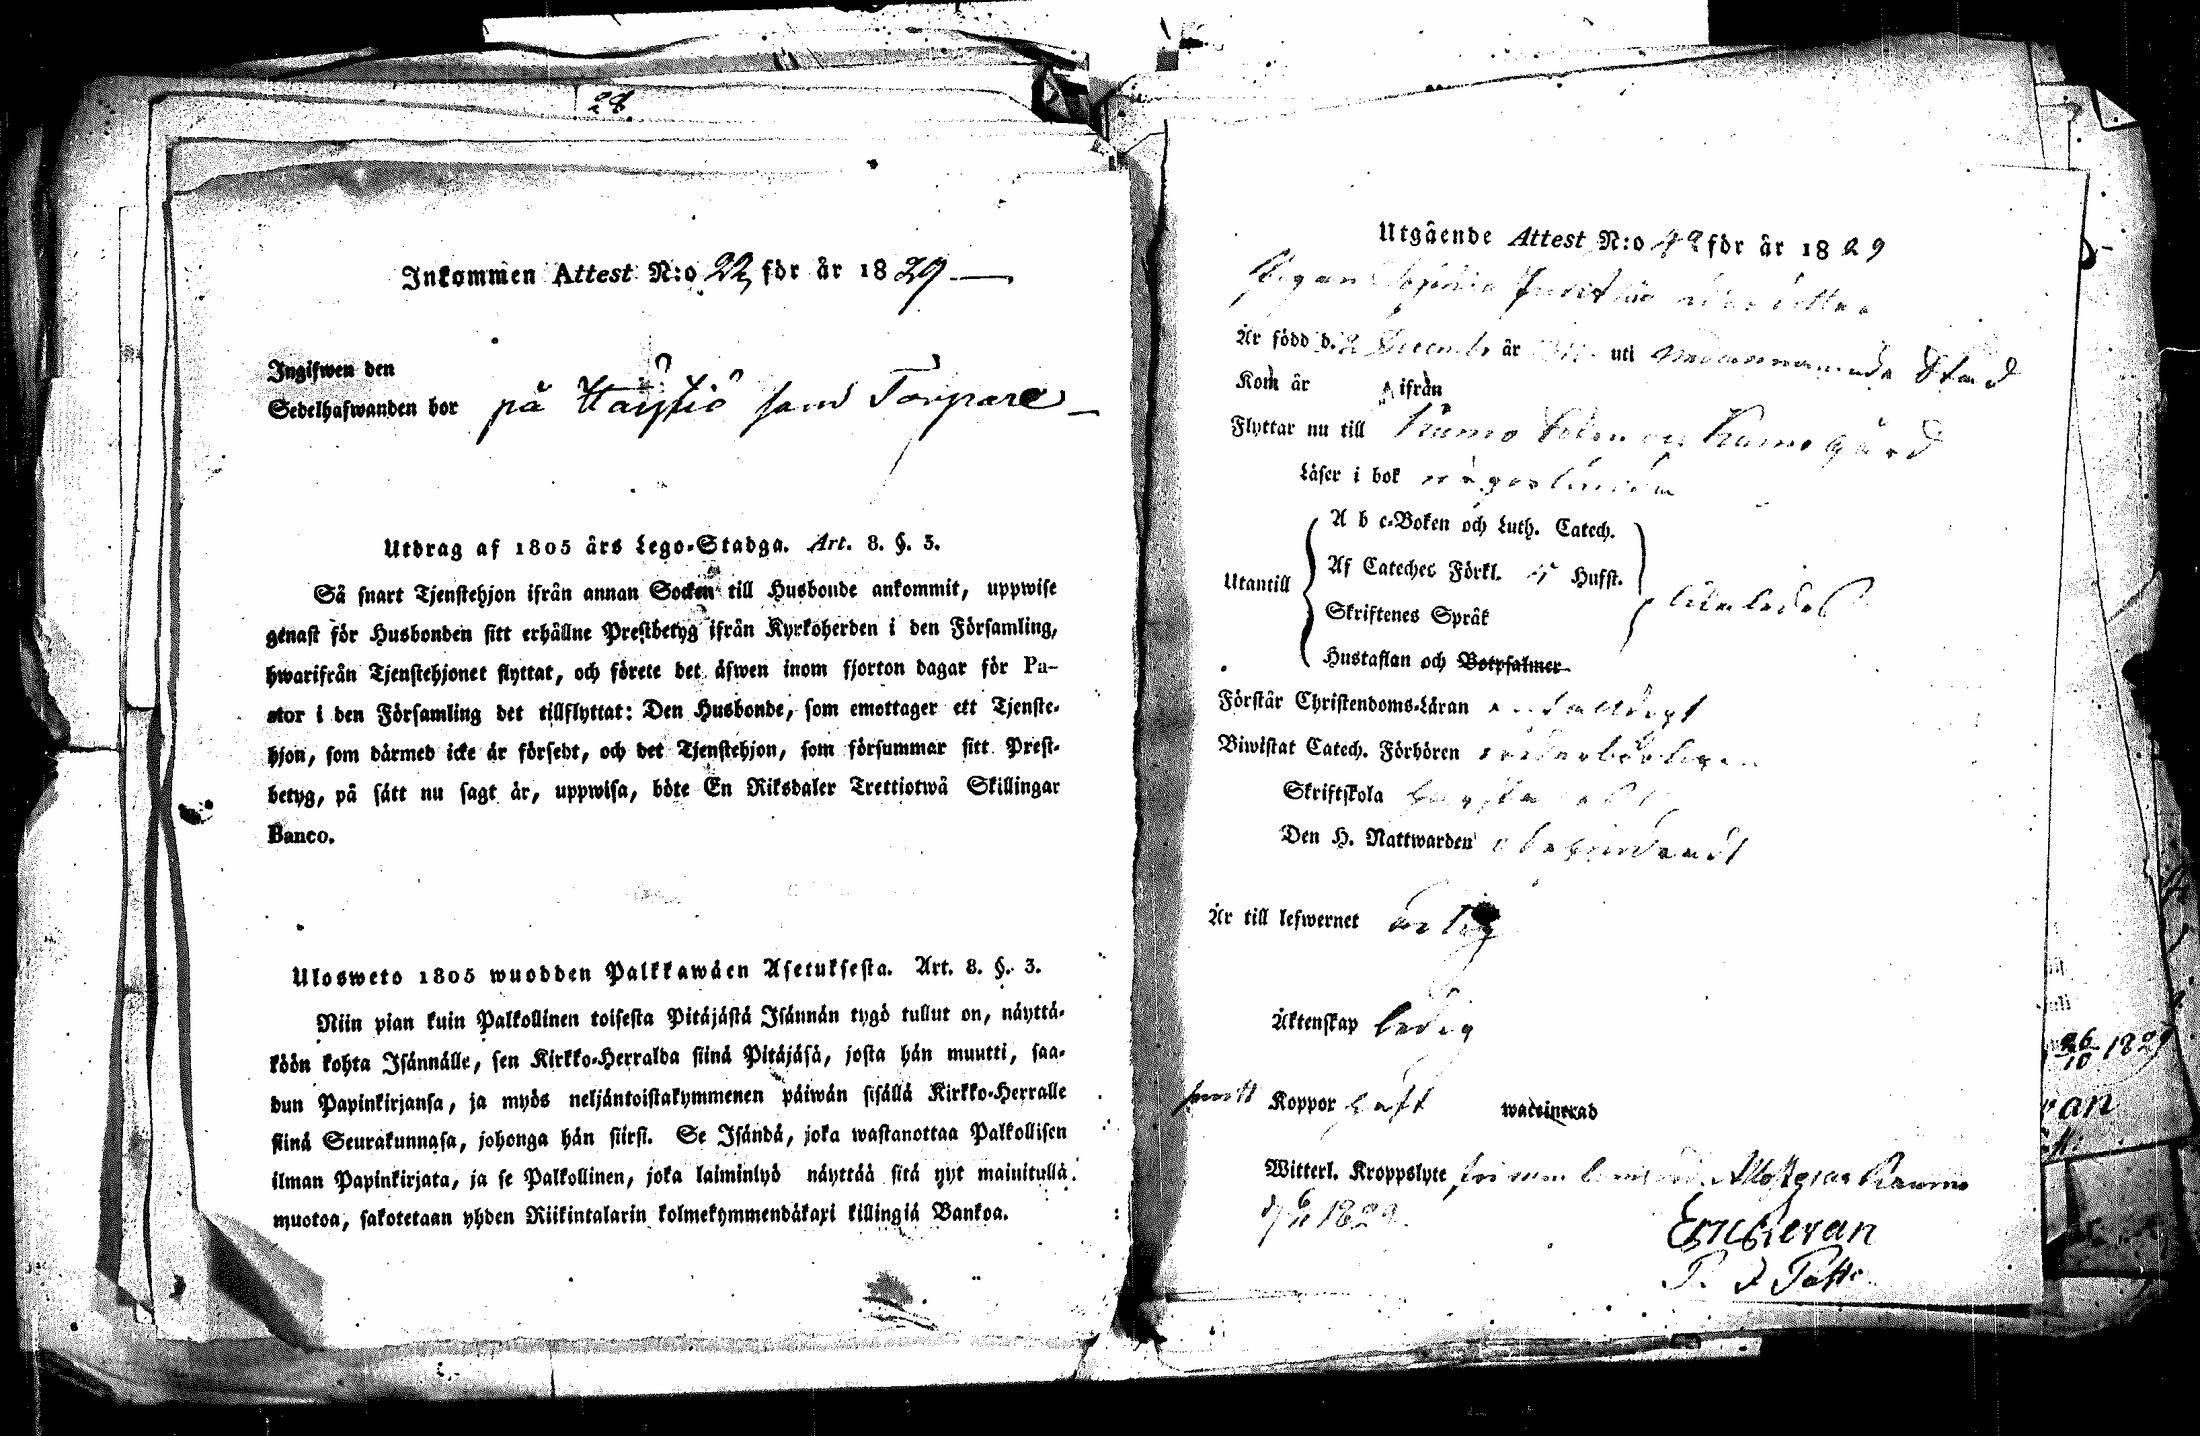 28.
Inkommen Attest N:o 22 för år 1829
Ingifwen den
Sedelhafwanden bor på Häyhiö som Torpare
Utdrag af 1805 års Lego-Stadga. Art. 8. §. 3.
Så snart Tjenstehjon ifrån annan Socken till Husbonde ankommit, uppwise
genast för Husbonden sitt erhållne Prestbetyg ifrån Kyrkoherden i den Församling,
hwarifrån Tjenstehjonet flyttat, och förete det äfwen inom fjorton dagar för Pa-
stor i den Församling det tillflyttat: Den Husbonde, som emottager ett Tjenste-
hjon, som därmed icke är försedt, och det Tjenstehjon, som försummar sitt Prest-
betyg, på sätt nu sagt är, uppwisa, böte En Riksdaler Trettiotwå Skillingar
Banco.
Ulosweto 1805 wuodden Palkkawäen Asetuksesta. Art. 8. §. 3.
Niin pian kuin Palkollinen toisesta Pitäjästä Isännän tygö tullut on, näyttä-
köön kohta Isännälle, sen Kirkko-Herralda siinä Pitäjäsä, josta hän muutti, saa-
dun Papinkirjansa, ja myös neljäntoistakymmenen päiwän sisällä Kirkko-Herralle
siinä Seurakunnasa, johonga hän siirsi. Se Isändä, joka wastanottaa Palkollisen
ilman Papinkirjata, ja se Palkollinen, joka laiminlyö näyttää sitä nyt mainitulla
muotoa, sakotetaan yhden Riikintalarin kolmekymmendäkaxi killingiä Bankoa.
Utgående Attest N:o 42 för år 1829
Pigan Sophia
Är född d. 2 December år uti nedannämnde Stad
Kom år ifrån
Flyttar nu till Kumo Socken och Kumogård
Läser i bok någorlunda
A b c-Boken och Luth. Catech.
Af Cateches Förkl. 5 Hufst.
Utantill
Skriftenes Språk
likaledes
Hustaflan och Botpsalmer
Förstår Christendoms-Läran enfaldigt
Biwistat Catech. Förhören wederbörligen
Skriftskola
Den H. Nattwarden obehindradt
Är till lefwernet ärlig
Äktenskap ledig
Koppor haft waccinerad
Witterl. Kroppslyte Raumo
1829.
P. d. Past.
26/10 1829